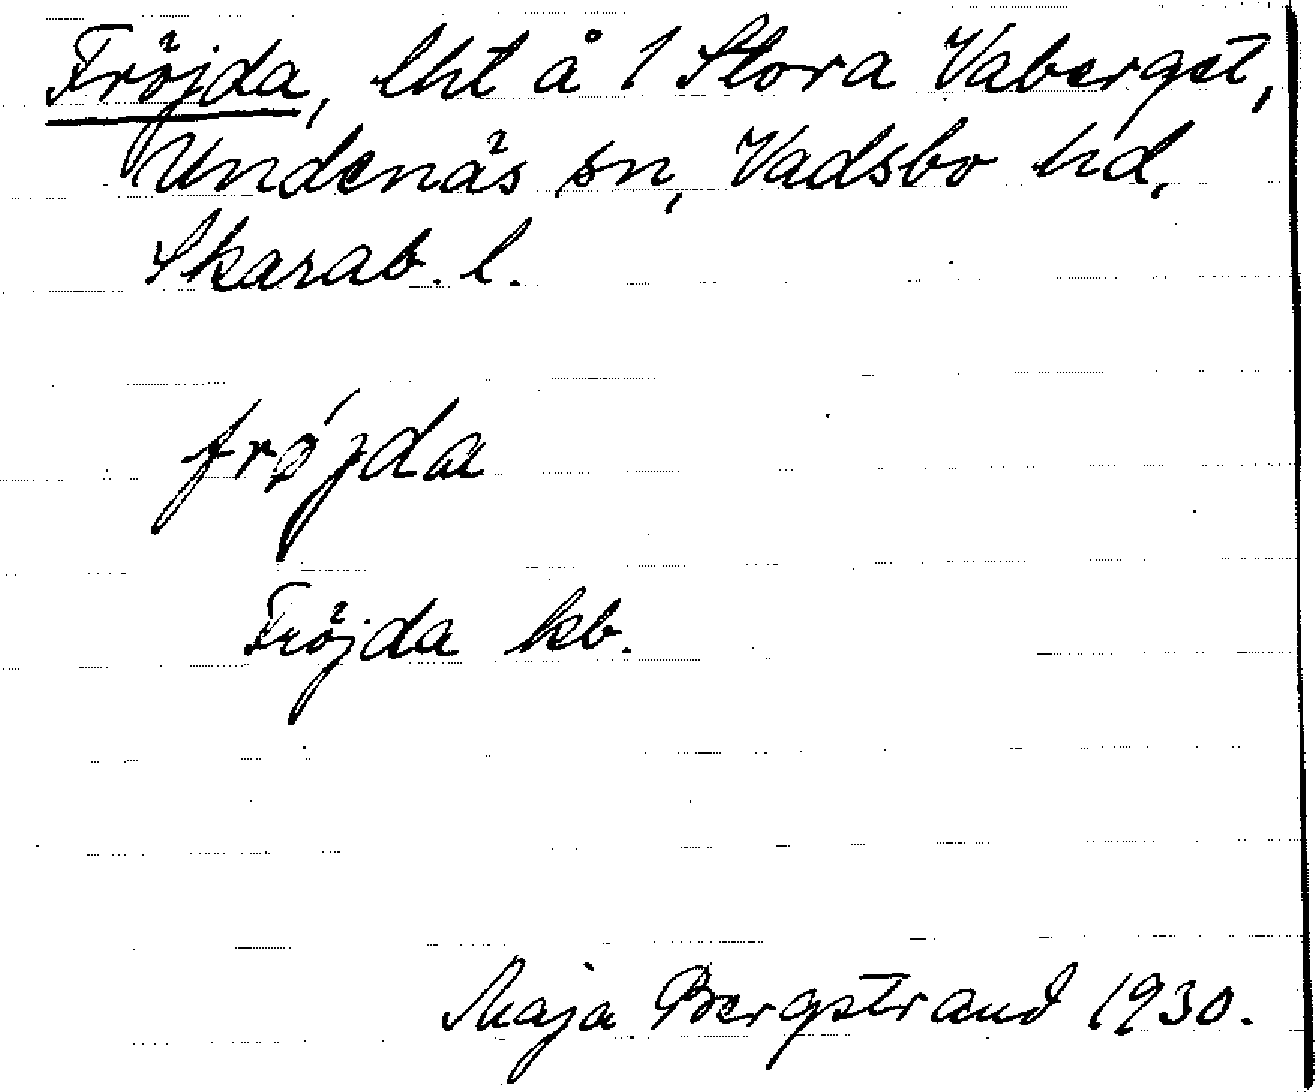 Fröjda, lht å 1 Stora Vaberget,
Undenäs sn, Vadsbo hd,
Skarab. l.
frǿjda
Fröjda kb.
Maja Bergstrand 1930.